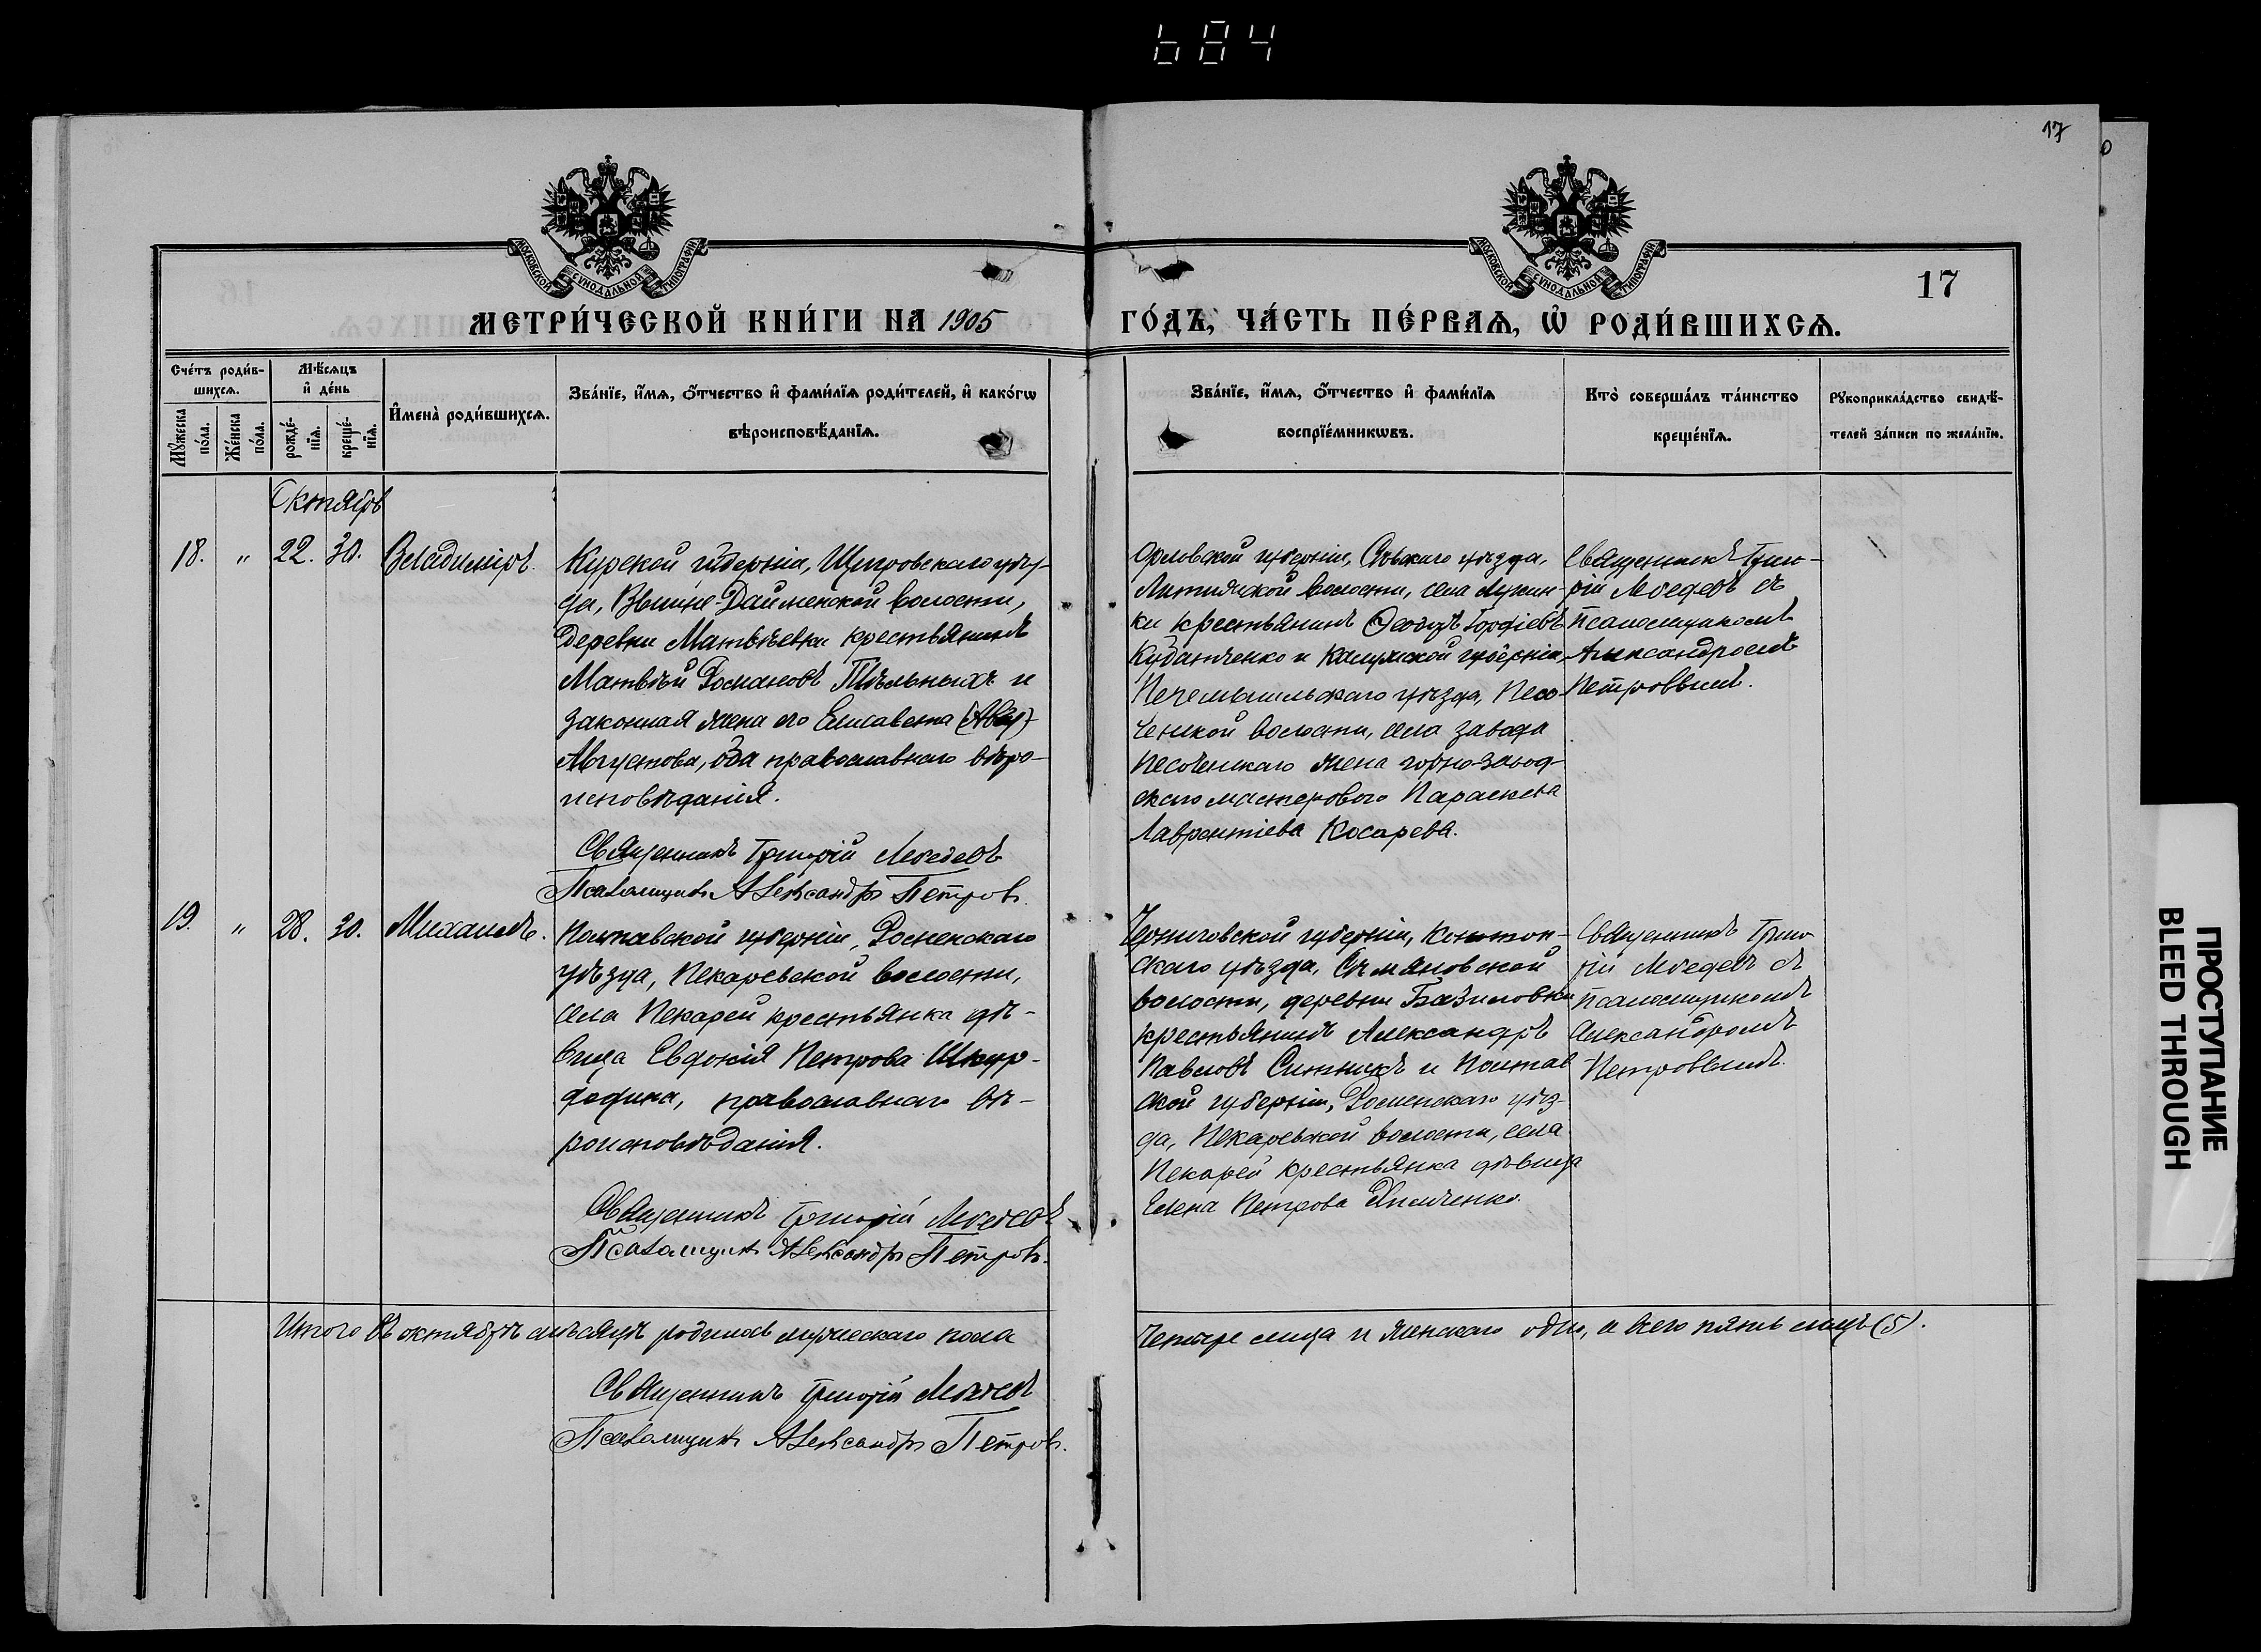 684
17
17
МОСКОВСКОЙ СУНОДАЛЬНОЙ ТИПОГРАФІИ
МОСКОВСКОЙ СУНОДАЛЬНОЙ ТИПОГРАФІИ
МЕТРИ́ЧЕСКОЙ КНИ́ГИ НА 1905
ГО́ДЪ, ЧА́СТЬ ПЕ́РВАѦ, Ѡ҆ РОДИ́ВШИХСѦ.
Сче́тъ роди́в-
шихсѧ.
Мѣ́сѧцъ
и҆ де́нь
Мꙋ́жеска по́ла.
Же́нска по́ла.
рожде́-
нїѧ.
креще́-
нїѧ.
И҆мена̀ роди́вшихсѧ.
Зва́нїе, и҆́мѧ, ѻ҆́тчество и҆ фами́лїѧ роди́телей, и҆ како́гѡ
вѣроисповѣ́данїѧ.
Зва́нїе, и҆́мѧ, ѻ҆́тчество и҆ фами́лїѧ
воспрїе́мникѡвъ.
Кто̀ соверша́лъ та́инство
креще́нїѧ.
Рꙋкоприкла́дство свидѣ́-
телей за́писи по жела́нїю.
Октябрь
18. " 22. 30. Владиміръ.
Курской губерніи, Щигровскаго уѣз-
да, Вышне-Дайменской волости,
деревни Матвѣевки крестьянинъ
Матвѣй Романовъ Тѣльныхъ и
законная жена его Елисавета (Авгу)
Августова, оба православнаго вѣро-
исповѣданія.
Священникъ Григорій Лебедевъ
Псаломщикъ Александръ Петровъ.
Орловской губерніи, Сѣвскаго уѣзда,
волости, села Лужин-
ки крестьянинъ Ѳеодоръ Гордіевъ
Кубатченко и Калужской губерніи,
Перемышльскаго уѣзда, Песо-
ченской волости, села завода
Песоченскаго жена горно-завод-
скаго мастерового Параскева
Лаврентіева Косарева.
Священникъ Григо-
рій Лебедевъ съ
псаломщикомъ
Александромъ
Петровымъ.
19. " 28. 30. Михаилъ.
Полтавской губерніи, Роменскаго
уѣзда, Пекаревской волости,
села Пекарей крестьянка дѣ-
вица Евдокія Петрова Шкур-
додина, православнаго вѣ-
роисповѣданія.
Священникъ Григорій Лебедевъ
Псаломщикъ Александръ Петровъ.
Черниговской губерніи, Конотоп-
скаго уѣзда, Смѣляновской
волости, деревни Базиловки
крестьянинъ Александръ
Павловъ Ситникъ и Полтав-
ской губерніи, Роменскаго уѣз-
да, Пекаревской волости, села
Пекарей крестьянка дѣвица
Елена Петрова
Священникъ Григо-
рій Лебедевъ съ
псаломщикомъ
Александромъ
Петровымъ.
Итого въ октябрѣ мѣсяцѣ родилось мужескаго пола
четыре лица и женскаго одно, а всего пять лицъ (5).
Священникъ Григорій Лебедевъ
Псаломщикъ Александръ Петровъ.
ПРОСТУПАНИЕ
BLEED THROUGH